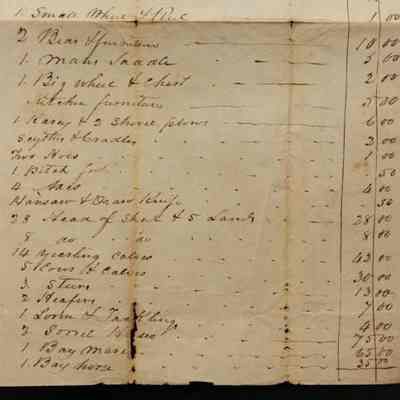 1 Small Wheel & Reel 1 00
2 Beds & furniture 10 00
1 Mans Saddle 5 00
1 Big wheel & Chest 2 00
Kitchen furniture 5 00
1 Cary & 2 Shovel plows 6 00
Scythes & Cradles 2 00
Two Hoes 1 00
1 Pitch fork 50
4 4 00
Hansaw & Draw Knife 50
23 Head of Sheep & 5 Lambs 28 00
8 do do 8 00
14 yearling Calves 43 00
5 Cows & Calves 30 00
3 Steers 13 00
2 Heafers 7 00
1 Loom & Tackling 4 00
2 Sorrel Horses 75 00
1 Bay Mare 65 00
1 Bay horse 35 00